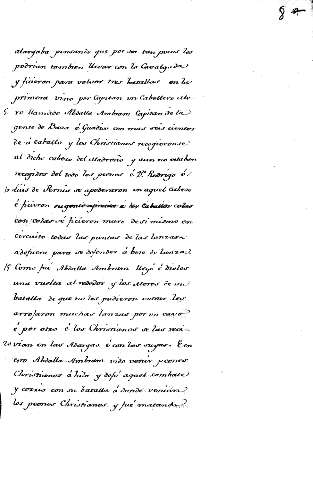 8
alargaba pensando que por ser tan pocos los
podrian tambien llevar con la Cavalgada
y ficieron para volver tres batallas en la
primera vino por Capitan un Caballero Mo
5 ro llamado Abdalla Ambran Capitan de la
gente de Baza é Guadix con mas seis cientos
de á caballo y los Christianos recogieronse
al dicho cabezo del Madroño y aun no estaban
recogidos del todo los peones é Dn. Rodrigo é
10 Luis de Pernia se apoderaron en aquel cabezo
é ficieron
con todas é ficieron muro de si mismo en
circuito todas las puntas de las lanzas
adefuera para se defender á bote de lanza.
15 Como fué Abdalla Ambran llegó é dioles
una vuelta al rededor y los Moros de su
batalla de que no los pudieron entrar les
arrojaron muchas lanzas por un cavo
é por otro é los Christianos se las reci-
20 vian en las Adargas é con las suyas. E en
esto Abdalla Ambran vido venir peones
Christianos á hilo y dejó aquel combate
y corrió con su batalla á donde venian
los peones Christianos y fué matando